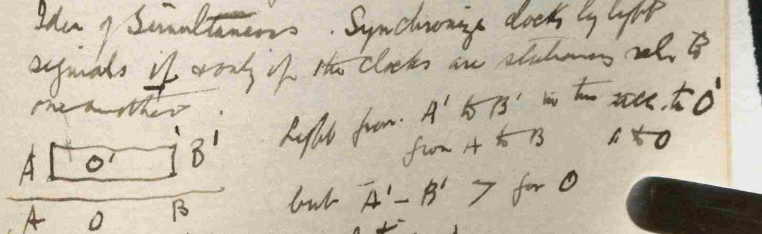 Idea of Simultaneous. Synchronize clocks by light
signals if & only if the clocks are stationary rel. to
one another.
Light from A' to B' in time rel. to O'
from A to B " to O
but A' - B' > for O
A O' B'
A O B